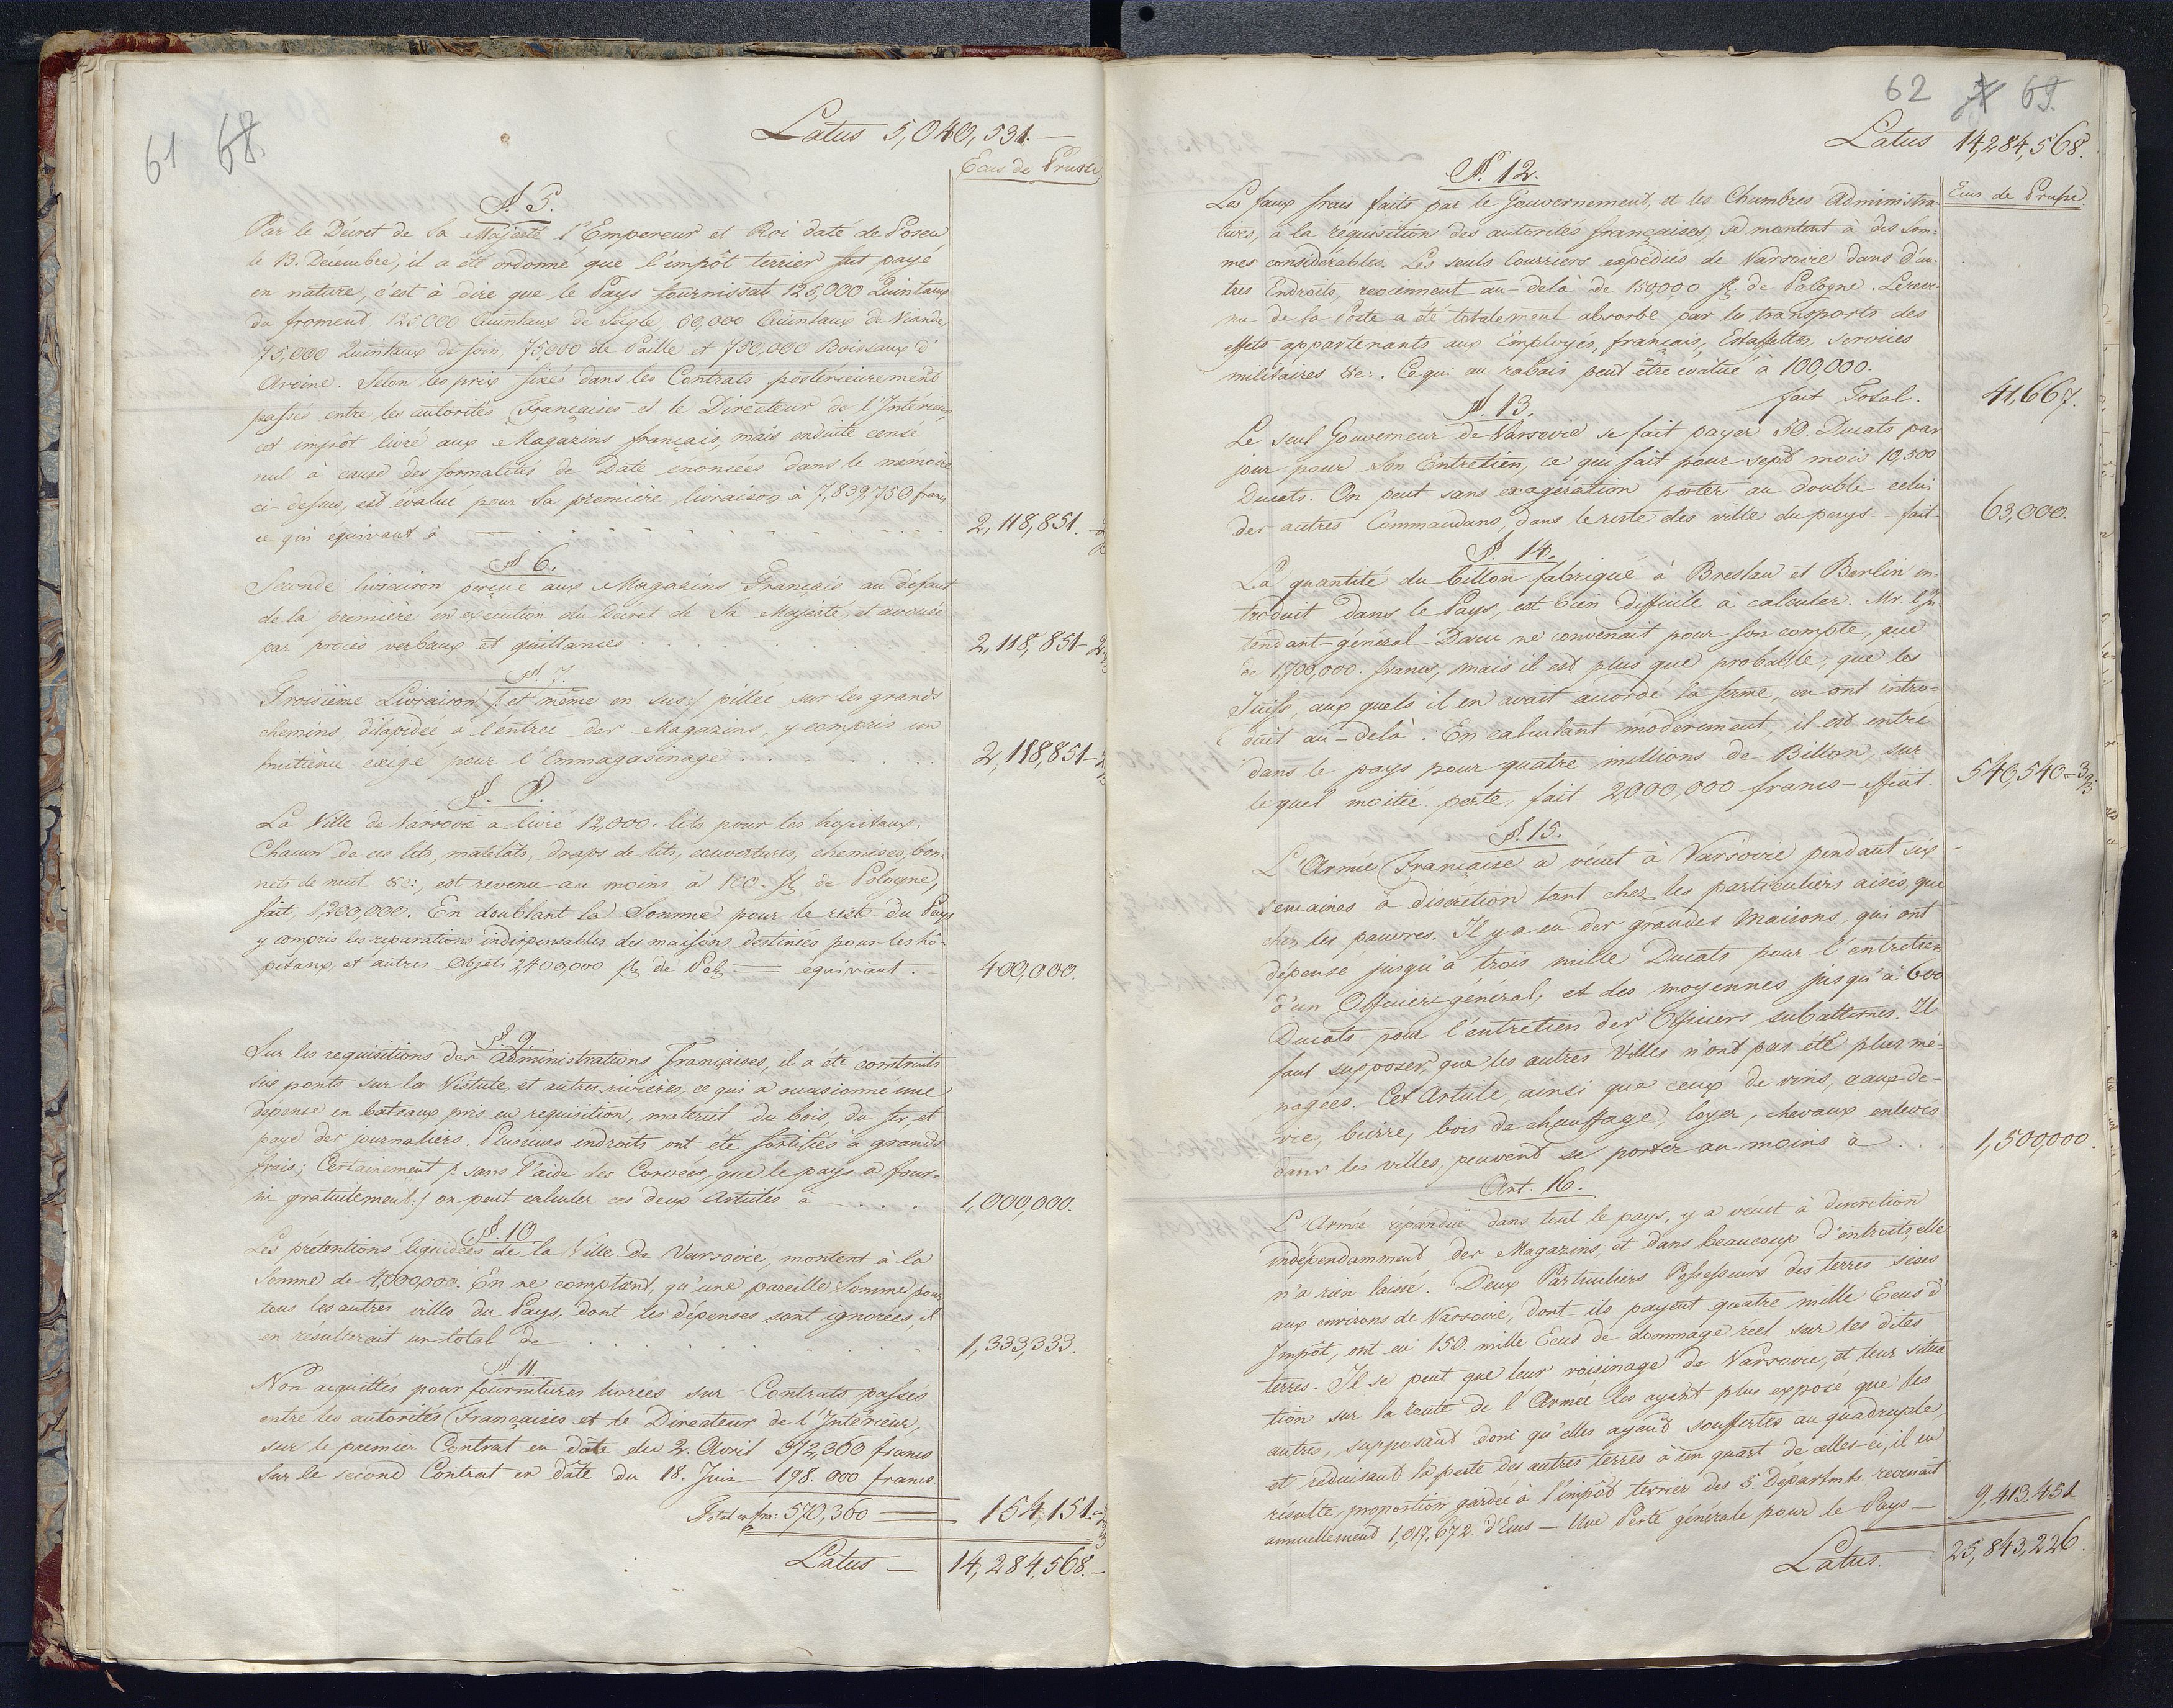 61 68.
Latus 5,040,531.—
Ecus de Prusse
§. 5.
Par le Décret de Sa Majesté l'Empereur et Roi daté de Posen
le 13. Decembre, il a été ordonné que l'impôt terrier fut payé
en nature, c'est à dire que le Pays fournissat 125,000 Quintaux
du froment, 125000 Quintaux de Seigle, 50,000 Quintaux de Viande,
75,000 Quintaux de foin, 75,000 de Paille et 750,000 Boissaux d'
Avoine. Selon les prix fixés dans les Contrats postérieurement
passés entre les autorités Françaises et le Directeur de l'Intérieur,
cet impôt livré aux Magazins français, mais ensuite censé
nul à cause des formalités de Date énoncées dans le mémoire
ci-dessus, est évalué pour la première livraison à 7,839,750 francs
ce qui équivaut à — 2,118,851.
§ 6.
Seconde livraison perçue aux Magazins Français au défaut
de la première en execution du Decret de Sa Majesté, et avouée
par procès verbaux et quittances 2,118,851-
§. 7.
Troisième Livraison /: et même en sus :/ pillée sur les grands
chemins, dilapidée à l'entrée des Magazins, y compris un
huitième exigé pour l'Emmagasinage 2,118,851-
§. 8.
La Ville de Varsovie a livré 12,000. lits pour les hopitaux.
Chacun de ces lits, matelats, draps de lits, couvertures, chemises, bon-
nets de nuit &c:, est revenu au moins à 100. fl. de Pologne,
fait, 1,200,000. En doublant la Somme pour le reste du Pays
y compris les reparations indispensables des maisons destinées pour les hô-
pitaux, et autres Objets 2,400,000 fl. de Pol. — équivaut. 400,000.
§. 9.
Sur les requisitions des administrations françaises, il a été construits
six ponts sur la Vistule et autres rivières, ce qui a occasionné une
dépense en bateaux pris en requisition, materiel du bois, du fer, et
paye des journaliers. Plusieurs endroits ont été fortifiés à grands
frais; Certainement /: sans l'aide des Corvées, que le pays a four-
ni gratuitement :/ on peut calculer ces deux Articles à 1,000,000.
§. 10.
Les prétentions liquidées de la Ville de Varsovie, montent à la
Somme de 4,000,000. En ne comptant, qu'une pareille Somme pour
tous les autres villes du Pays, dont les dépenses sont ignorées, il
en résulterait un total de 1,333,333.
§. 11.
Non acquittés pour fournitures livrées sur Contrats passés
entre les autorités Françaises et le Directeur de l'Intérieur,
sur le premier Contrat en date du 2. Avril 372,360 francs
Sur le second Contrat en date du 18. Juin — 198.000 francs.
Total en frs: 570,360 — 154,151.
Latus — 14,284,568.—
62 69.
Latus 14,284,568.
Ecus de Prusse
§. 12.
Les faux frais faits par le Gouvernement, et les Chambres Administra-
tives, à la réquisition des autorités françaises, se montent à des som-
mes considérables. Les seuls Courriers expédiés de Varsovie dans d'au-
tres Endroits, reviennent au-delà de 150,000 fl. de Pologne. Le reve-
nu de la Poste a été totalement absorbé par les transports des
effets appartenants aux Employés, français, Estaffettes, Services
militaires &c:. Ce qui au rabais peut être évalué à 100,000.
fait Total. 41,667.
§. 13.
Le seul Gouverneur de Varsovie se fait payer 50. Ducats par
jour pour son Entretien, ce qui fait pour sept mois 10,500
Ducats. On peut sans exagération porter au double celui
des autres Commandans, dans le reste des ville du pays — fait 63,000.
§. 14.
La quantité du billon fabriqué à Breslau et Berlin in-
troduit dans le Pays, est bien difficile à calculer. Mr. l'In-
tendant-général Daru ne convenait pour son compte, que
de 1,700,000. francs, mais il est plus que probable, que les
Juifs, aux quels il en avait accordé la ferme, en ont intro-
duit au-delà. En calculant modérement, il est entré
dans le pays pour quatre millions de Billon, sur
le quel moitié perte, fait 2,000,000 francs — 540,540-
§. 15.
L'Armée Française a vécut à Varsovie pendant six
semaines à discrétion tant chez les particuliers aisés, que
chez les pauvres. Il y a eu des grandes Maisons, qui ont
dépensé jusqu'à trois mille Ducats pour l'entretien
d'un Officier-général, et des moyennes jusqu'à 600
Ducats pour l'entretien des Officiers subalternes. Il
faut supposer, que les autres Villes n'ont pas été plus mé-
nagées. Cet Article, ainsi que ceux de vins, eaux de-
vie, bierre, bois de chauffage, loyer, chevaux enlevés
dans les villes, peuvent se porter au moins à 1,500,000.
Art. 16.
L'Armée répandue dans tout le pays, y a vécut à discretion
indépendamment des Magazins, et dans beaucoup d'entroits, elle
n'a rien laissé. Deux Particuliers Possesseurs des terres sises
aux environs de Varsovie, dont ils payent quatre mille Ecus d'
Impôt, ont eu 150. mille Ecus de dommage réel sur les dites
terres. Il se peut que leur voisinage de Varsovie, et leur situa
tion sur la route de l'Armée les ayent plus exposé que les
autres, supposant donc qu'elles ayent souffertes au quadruple,
et réduisant la perte des autres terres à un quart de celles-ci, il en
résulte, proportion gardée à l'impôt terrier des 5. Départmts. revenant
annuellement 1,017,672. d'Ecus — Une Perte générale pour le Pays — 9,413,451
Latus. 25,843,226.